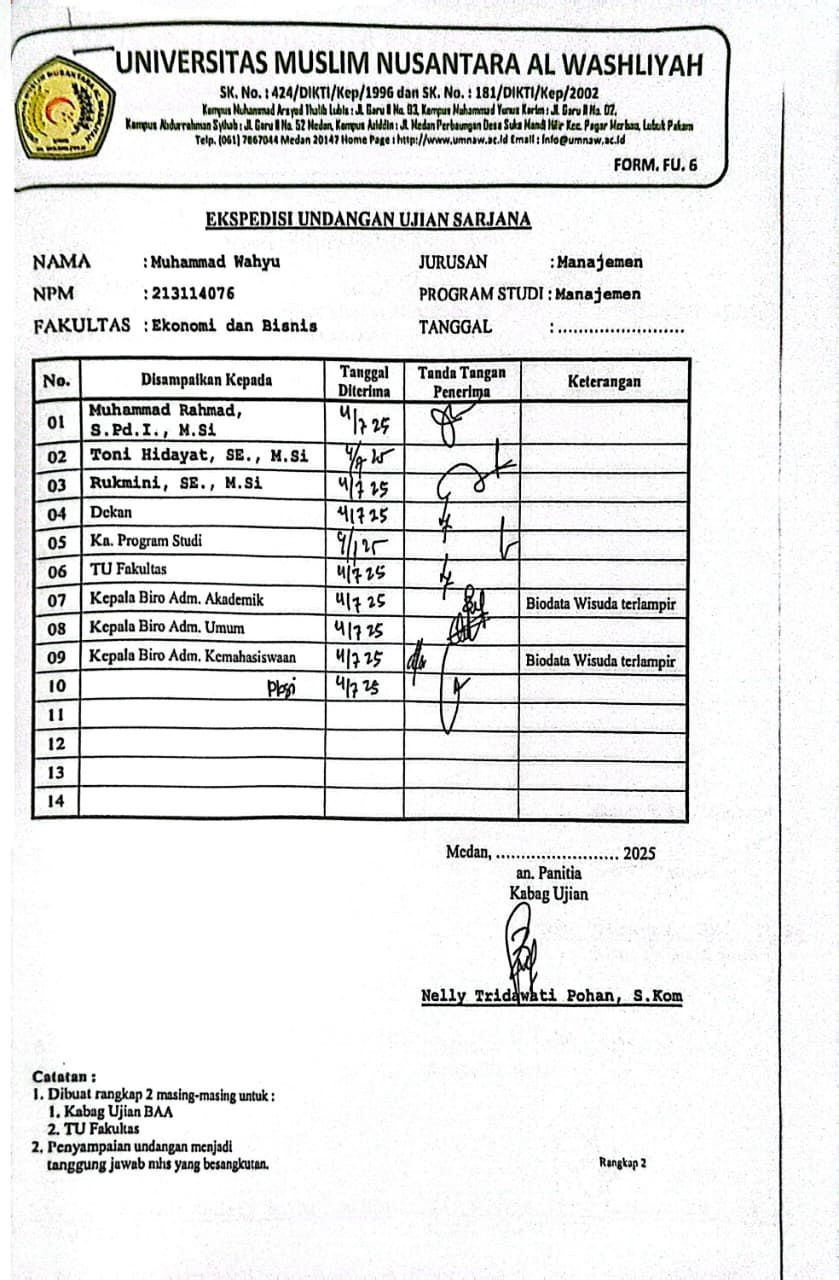 UNIVERSITAS MUSLIM NUSANTARA AL WASHLIYAH
SK. No. : 424/DIKTI/Kep/1996 dan SK. No. : 181/DIKTI/Kep/2002
Kampus Muhammad Arsyad Thalib Lubis : Jl. Garu II No. 93, Kampus Muhammad Yunus Karim : Jl. Garu II No. 02,
Kampus Abdurrahman Syihab : Jl. Garu II No. 52 Medan, Kampus : Jl. Medan Perbaungan Desa Suka Mandi Hilir Kec. Pagar Merbau, Lubuk Pakam
Telp. (061) 7867044 Medan 20147 Home Page : http://www.umnaw.ac.id Email : info@umnaw.ac.id
FORM. FU. 6
EKSPEDISI UNDANGAN UJIAN SARJANA
NAMA : Muhammad Wahyu JURUSAN : Manajemen
NPM : 213114076 PROGRAM STUDI : Manajemen
FAKULTAS : Ekonomi dan Bisnis TANGGAL : ........................
No. Disampaikan Kepada Tanggal Diterima Tanda Tangan Penerima Keterangan
01 Muhammad Rahmad, S.Pd.I., M.Si 4/7 25
02 Toni Hidayat, SE., M.Si
03 Rukmini, SE., M.Si 4/7 25
04 Dekan 4/7 25
05 Ka. Program Studi
06 TU Fakultas 4/7 25
07 Kepala Biro Adm. Akademik 4/7 25 Biodata Wisuda terlampir
08 Kepala Biro Adm. Umum 4/7 25
09 Kepala Biro Adm. Kemahasiswaan 4/7 25 Biodata Wisuda terlampir
10 4/7 25
11
12
13
14
Medan, ........................ 2025
an. Panitia
Kabag Ujian
Nelly Tridawati Pohan, S.Kom
Catatan :
1. Dibuat rangkap 2 masing-masing untuk :
1. Kabag Ujian BAA
2. TU Fakultas
2. Penyampaian undangan menjadi
tanggung jawab mhs yang besangkutan.
Rangkap 2